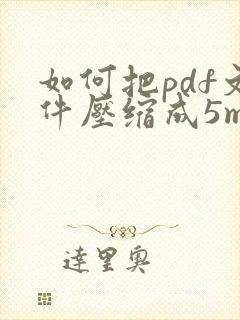 如何把pdf文
件壓缩成5m
達里奧